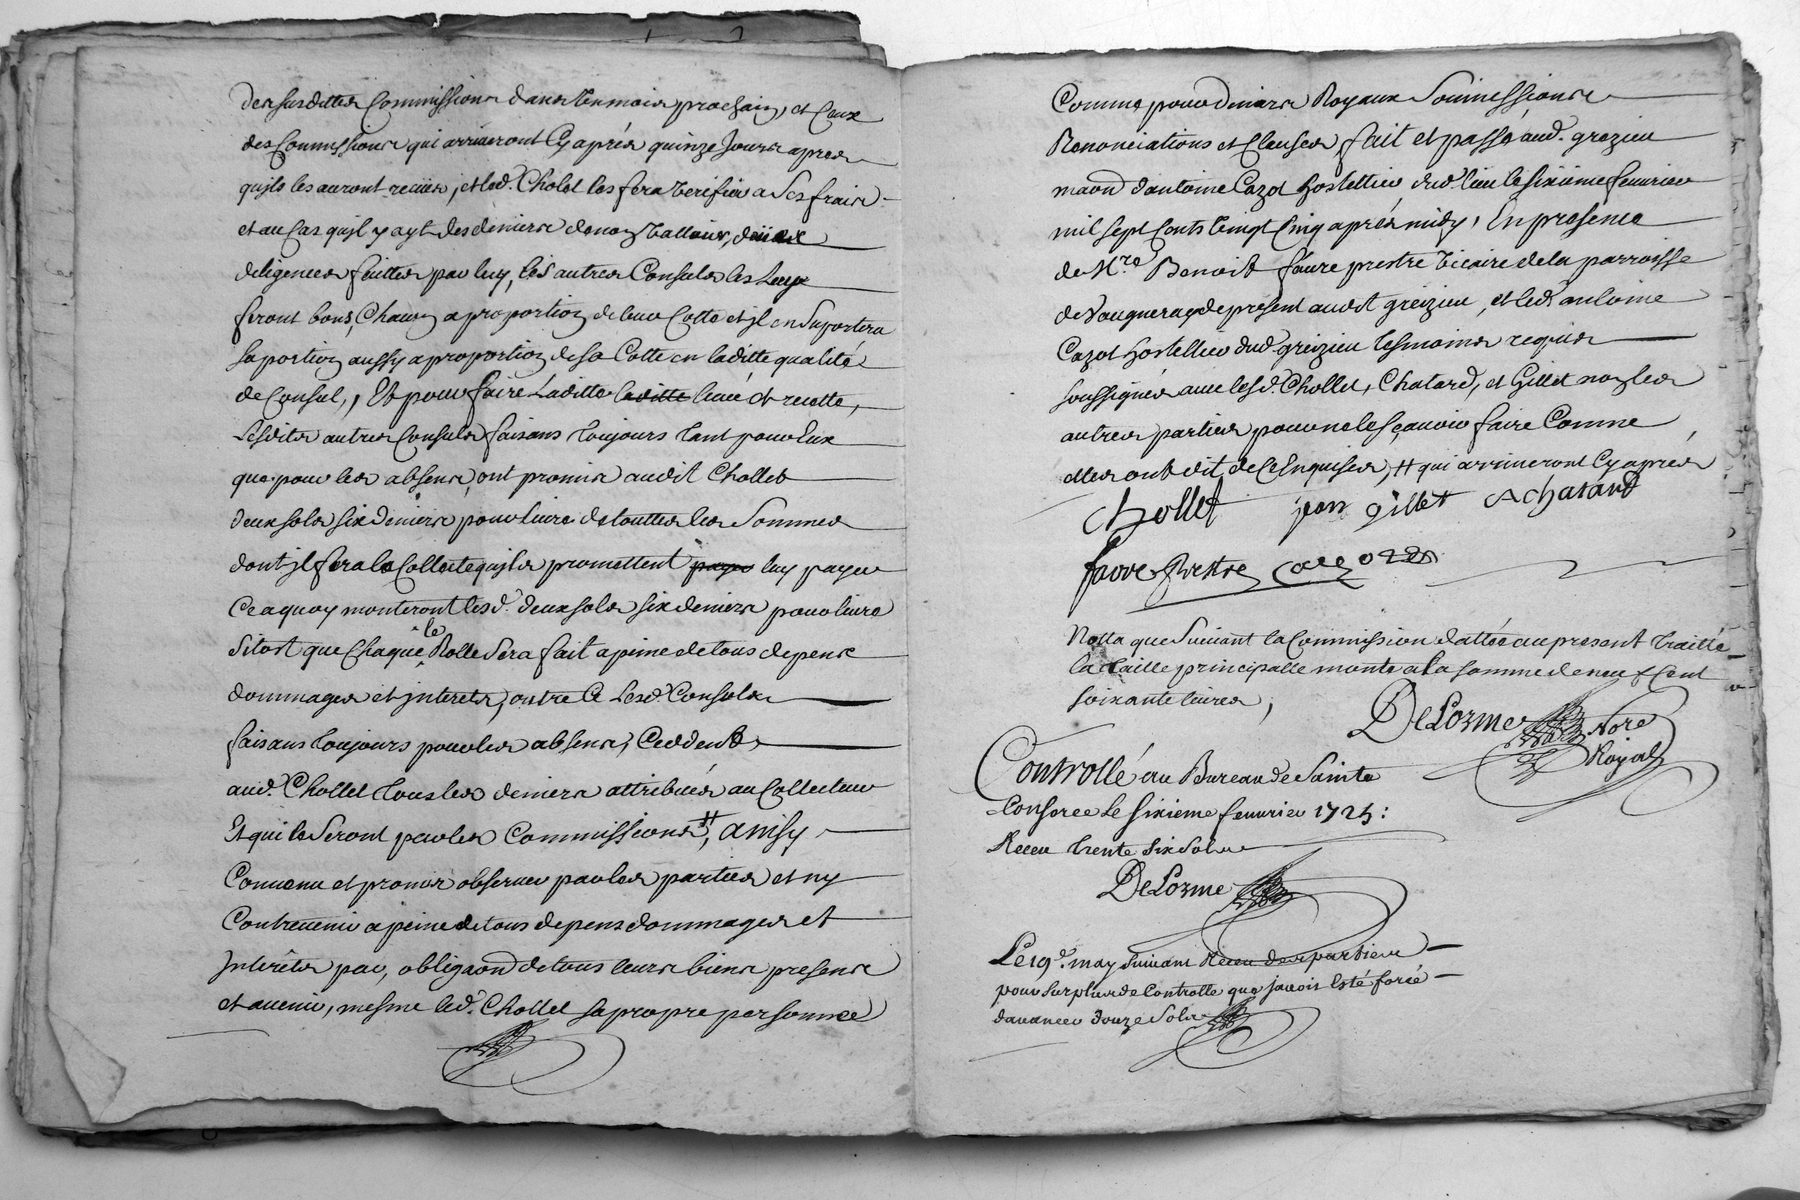 des susdittes Commissions dans un mois prochain, et Ceux
des Commissions qui arriveront Cy après quinze Jours apres
quils les auront reciües, et led. Chollet les fera verifier a Ses frais
et au Cas quil y ayt des deniers de non Valleurs,
diligences faittes par luy, les autres Consuls les Luy
feront bons, Chacun a proportion de leur Cotte et il en Suportera
sa portion aussy a proportion de sa Cotte en laditte qualité
de Consul,, Et pour faire Laditte laditte leuée et recette,
Lesdits autres Consuls faisans toujours tant pour Eux
que pour les absens, ont promis audit Chollet
deux sols six deniers pour liure de touttes les Sommes
dont il fera la Collecte quils promettent payer luy payer
Ce a quoy monteront lesd. deux sols six deniers pour liure
Sitost que Chaque le Rolle Sera fait a peine de tous depens
dommages et interets, outre Ce Lesd. Consuls
faisans toujours pour les absens, Ceddent
aud. Chollet tous les deniers attribués au Collecteur
Et qui le Seront par les Commissions #, ainsy
Conuenu et promis obseruer par les parties et ny
Contreuenir a peine de tous depens dommages et
Interets par, obligaon de tous leurs biens presens
et auenir, mesme led. Chollet sa propre personne
Comme pour deniers Royaux Soumissions
Renonciations et Clauses fait et passé aud. grezieu
maon d'antoine Cazot hostellier dud. lieu le sixieme feurier
mil sept Cents vingt Cinq après midy, En presence
de Mre Benoist faure prestre Vicaire de la parroisse
de Vaugneray de present audit greizieu, et led. antoine
Cazot hostellier dud. greizieu tesmoins requis
soussignés auec lesd. Chollet, Chatard, et Gillet non les
autres parties pour ne le sçauoir faire Comme
elles ont dit de Ce Enquises, # qui arriueront Cy après
Chollet jean gillet A chatard
faure prestre Cazot
Notta que Suiuant la Commission dattée au present traitté
la taille principalle monte a la somme de neuf Cent
soixante liures,
DeLorme Nore
Royal
Controllé au Bureau de Sainte
Consorce Le sixieme feurier 1725:
Receu trente six Sols
DeLorme
Le 19e. may suiuant Receu des parties
pour surplus de Controlle que jauois Esté forcé
dauancer douze Sols